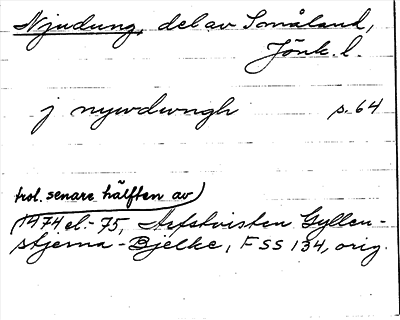 Njudung, del av Småland,
Jönk. l.
j nywdwngh s. 64
trol. senare hälften av
1474 el. -75, Arfstvisten Gyllen-
stjerna - Bjelke, FSS 134, orig.